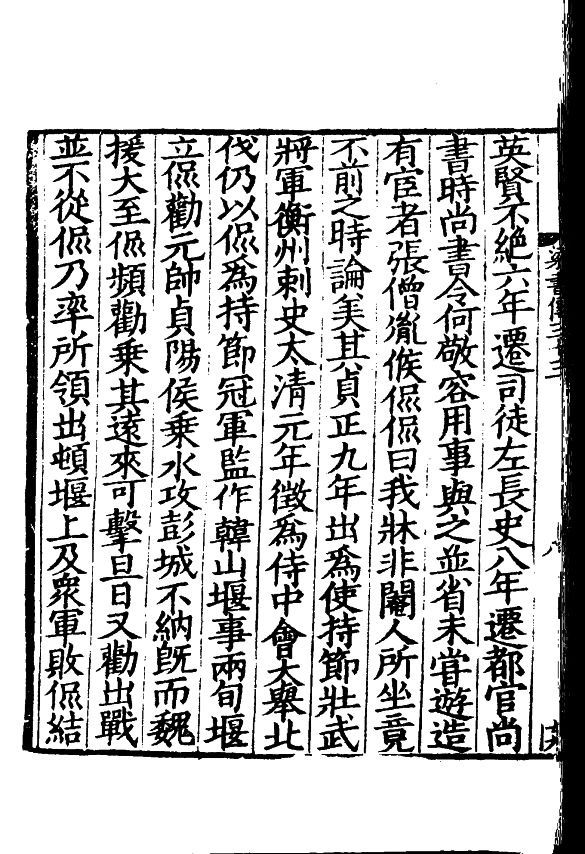 英賢不絶六年遷司徒左長史八年遷都官尚
書時尚書令何敬容用事與之並省未甞遊造
有宦者張僧胤候侃侃曰我牀非閹人所坐竟
不前之時論美其貞正九年出爲使持節壯武
將軍衡州刺史太清元年徵爲侍中會大舉北
伐仍以侃爲持節冠軍監作韓山堰事兩旬堰
立侃勸元帥貞陽侯乗水攻彭城不納旣而魏
援大至侃頻勸乗其遠來可擊旦日又勸出戰
並不從侃乃率所領出頓堰上及衆軍敗侃結